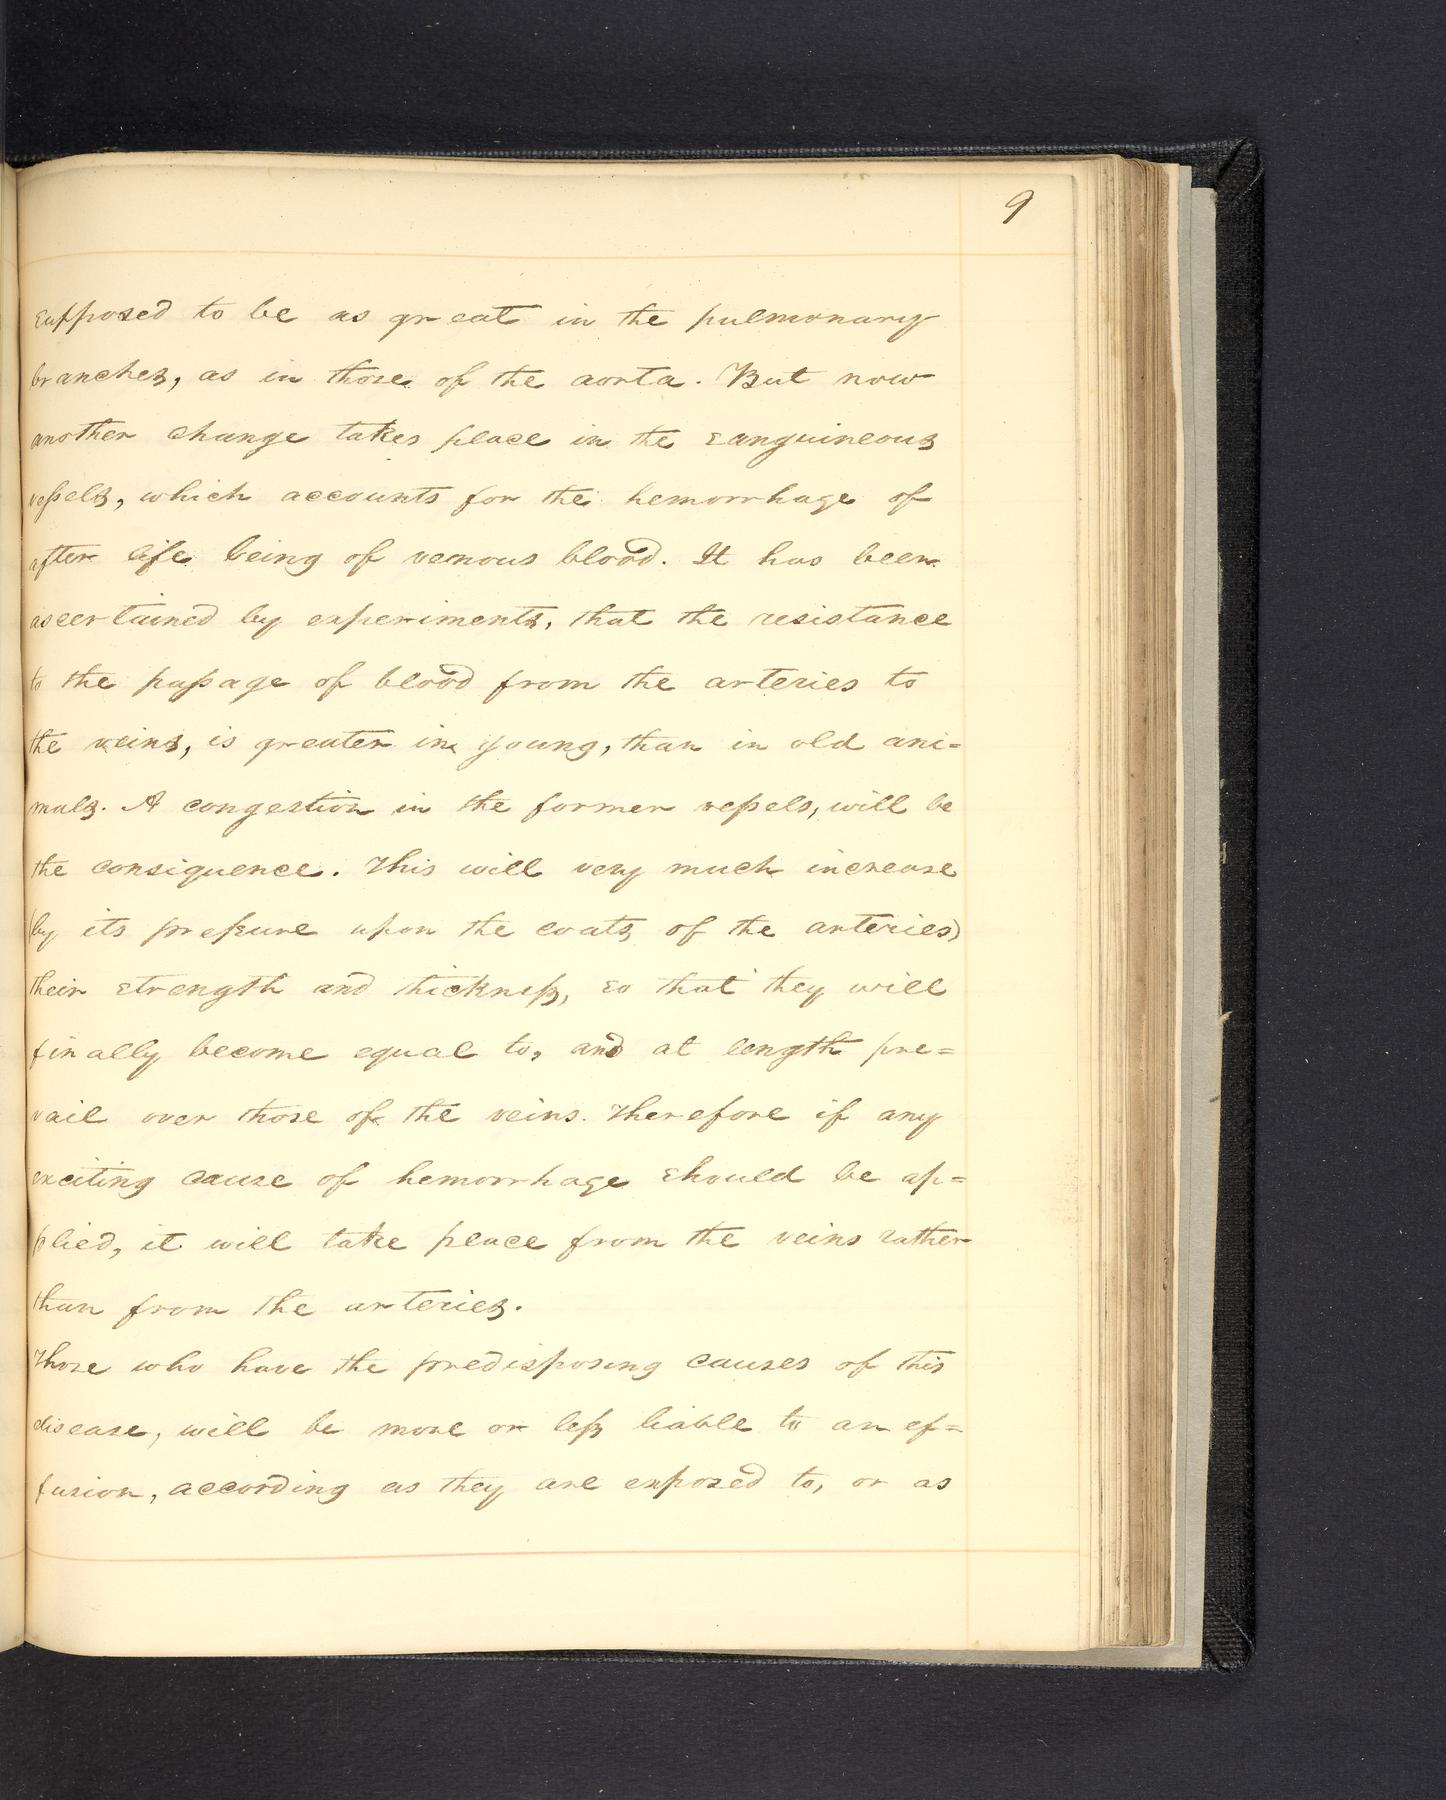 9
supposed to be as great in the pulmonary
branches, as in those of the aorta. But now
another change takes place in the sanguineous
vessels, which accounts for the hemorrhage of
after life being of venous blood. It has been
ascertained by experiments, that the resistance
to the passage of blood from the arteries to
the veins, is greater in young, than in old ani=
mals. A congestion in the former vessels, will be
the consiquence. This will very much increase
(by its pressure upon the coats of the arteries)
their strength and thickness, so that they will
finally become equal to, and at length pre=
vail over those of the veins. Therefore if any
exciting cause of hemorrhage should be ap=
plied, it will take place from the veins rather
than from the arteries.
Those who have the predisposing causes of this
disease, will be more or less liable to an ef=
fusion, according as they are exposed to, or as